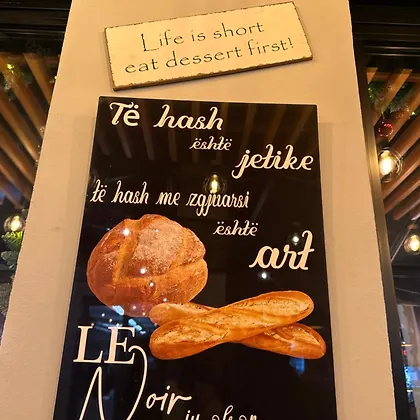 Life is short
eat dessert first!
Të hash
është
jetike
të hash me zgjuarsi
është
art
LE
Noir